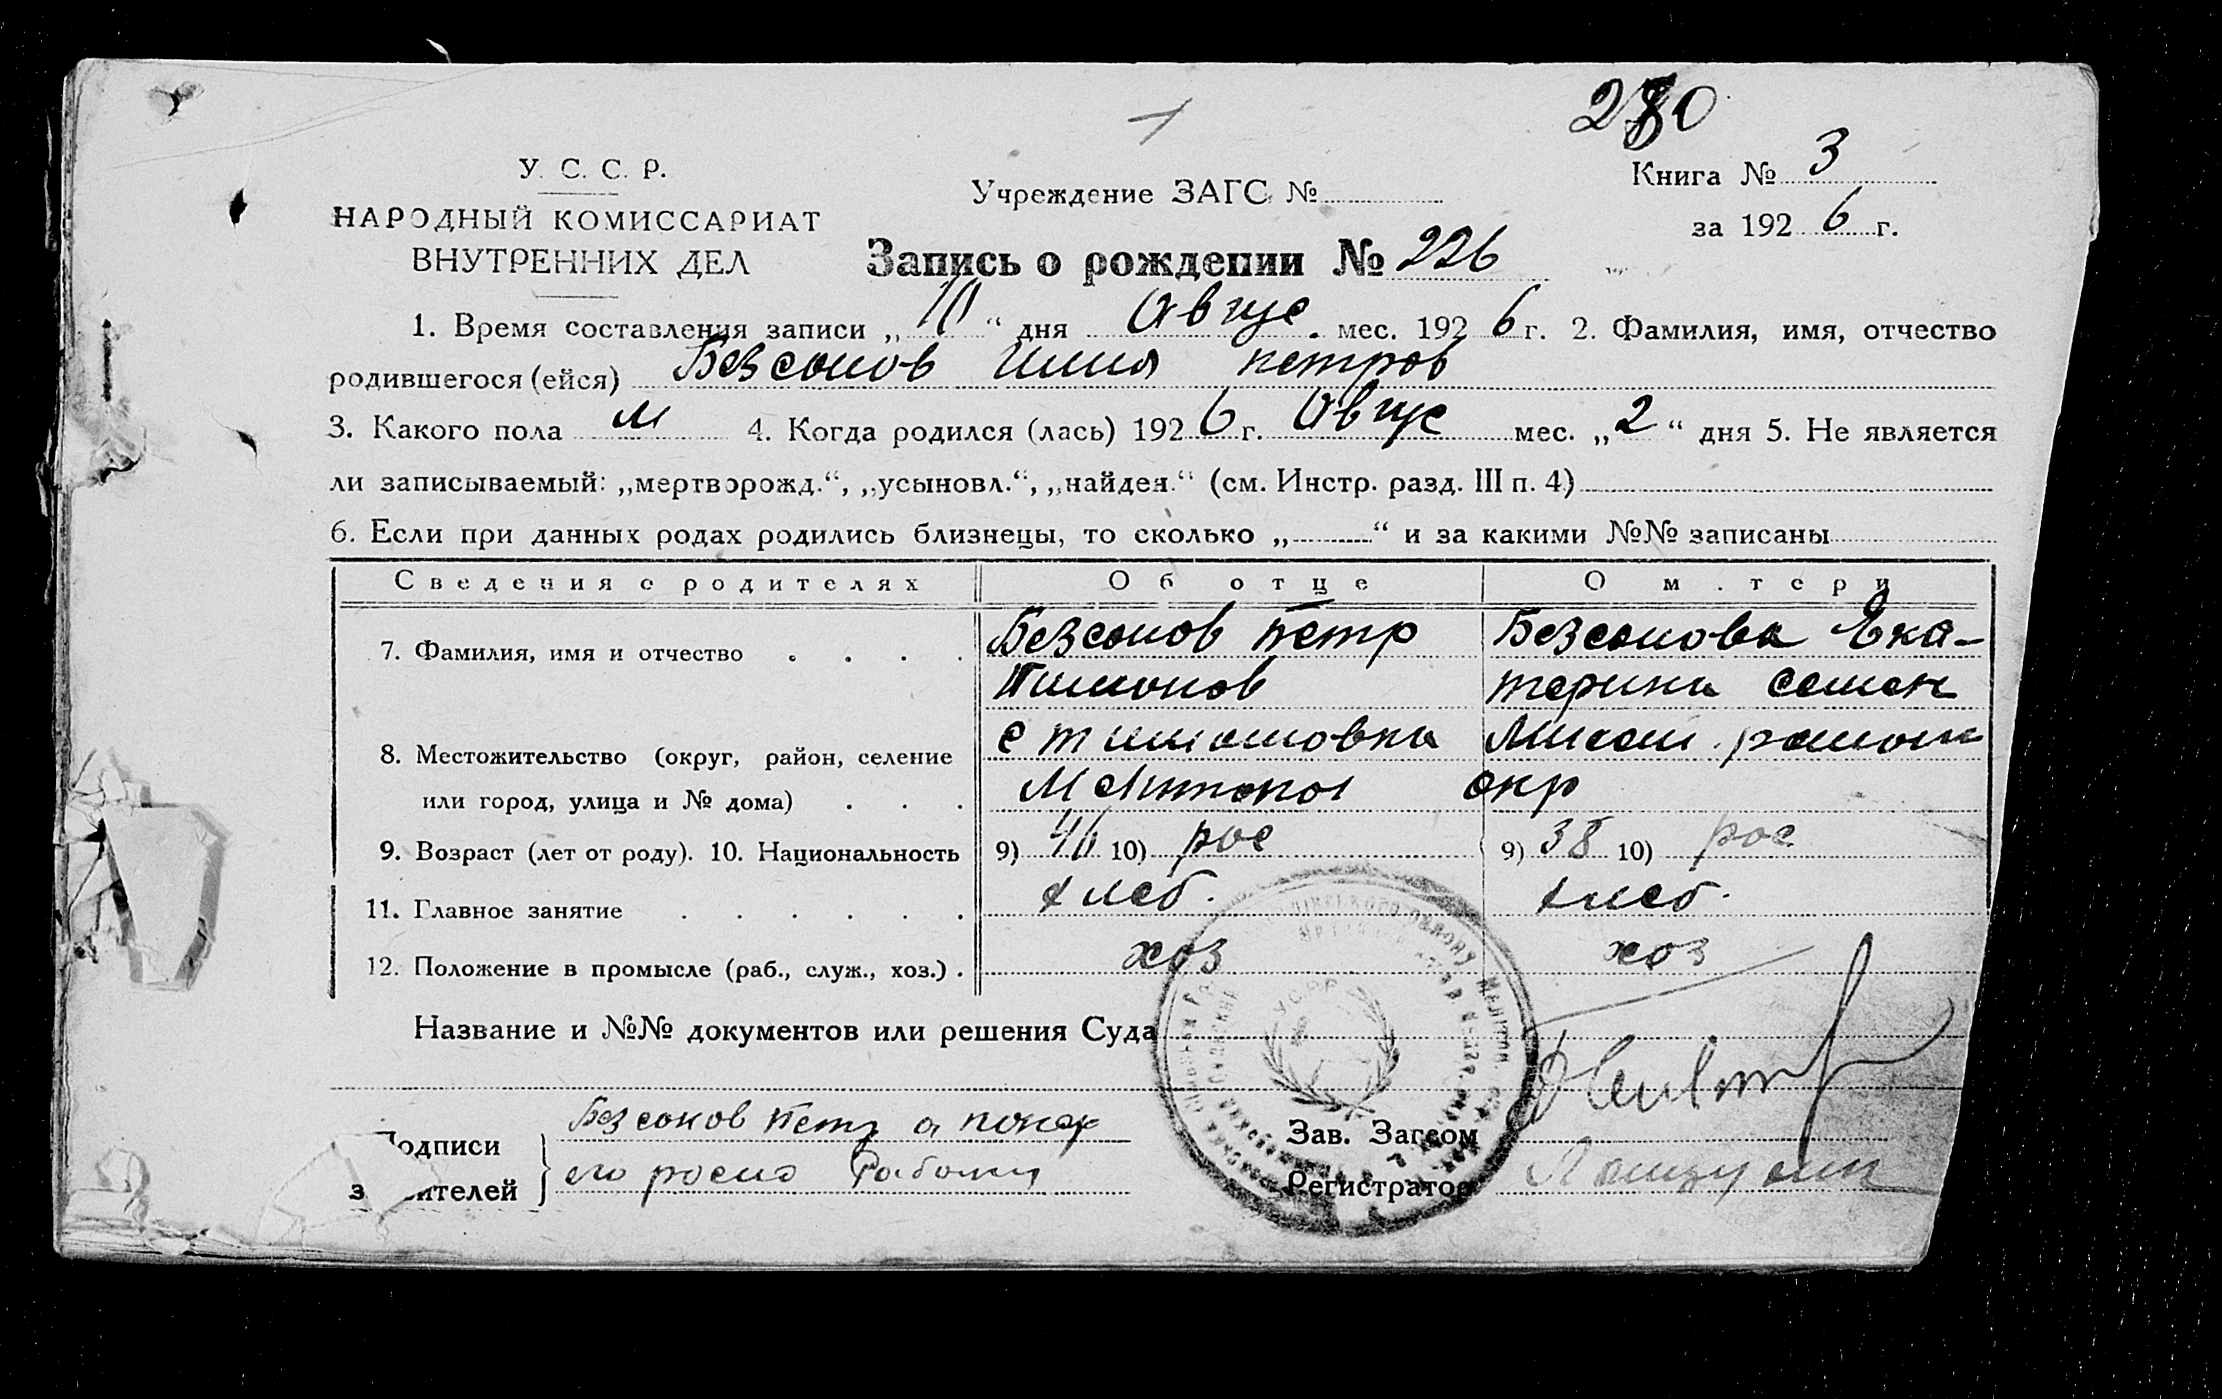 280
У. С. С. Р.
НАРОДНЫЙ КОМИССАРИАТ
ВНУТРЕННИХ ДЕЛ
Учреждение ЗАГС №
Книга № 3
за 1926 г.
Запись о рождении № 226
1. Время составления записи „10“ дня Авгус. мес. 1926 г. 2. Фамилия, имя, отчество
родившегося (ейся) Безсонов Илия петров
3. Какого пола м 4. Когда родился (лась) 1926 г. Авгус мес. „2“ дня 5. Не является
ли записываемый: „мертворожд.“, „усыновл.“, „найден.“ (см. Инстр. разд. III п. 4)
6. Если при данных родах родились близнецы, то сколько „ “ и за какими №№ записаны
Сведения о родителях Об отце О м.тери
7. Фамилия, имя и отчество Безсонов Петр Безсонова Ека-
Тимонов терина Семен
8. Местожительство (округ, район, селение с тимошовка район
или город, улица и № дома) Мелитопол окр
9. Возраст (лет от роду). 10. Национальность 9) 46 10) рос 9) 38 10) рос
11. Главное занятие хлеб. хлеб.
12. Положение в промысле (раб., служ., хоз.) хоз хоз
Название и №№ документов или решения Суда
УСРР
Подписи Безсонов Петр а
з ителей его
Зав. Загсом
Регистратор